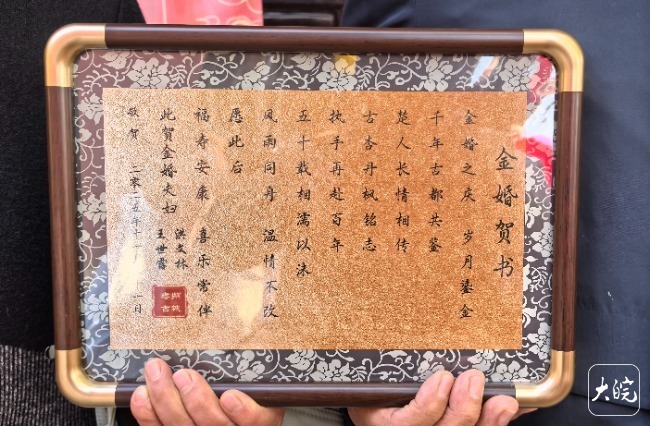 金婚贺书
金婚之庆 岁月鎏金
千年古都共鉴
楚人长情相传
古杏丹枫铭志
执手再赴百年
五十载相濡以沫
风雨同舟 温情不改
愿此后
福寿安康 喜乐常伴
此贺金婚夫妇
洪文林
王世
敬贺 二零二五年十
大皖